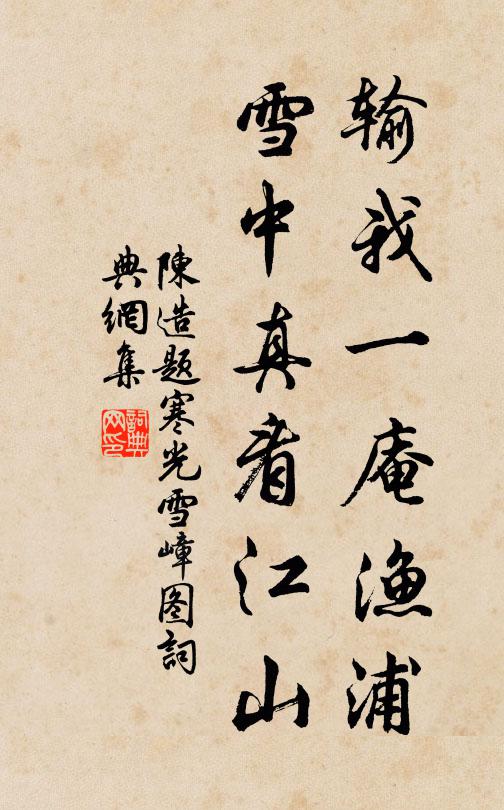 输我一庵渔浦
雪中真看江山
陳造题寒光雪嶂图詞
典網集
詞典网印